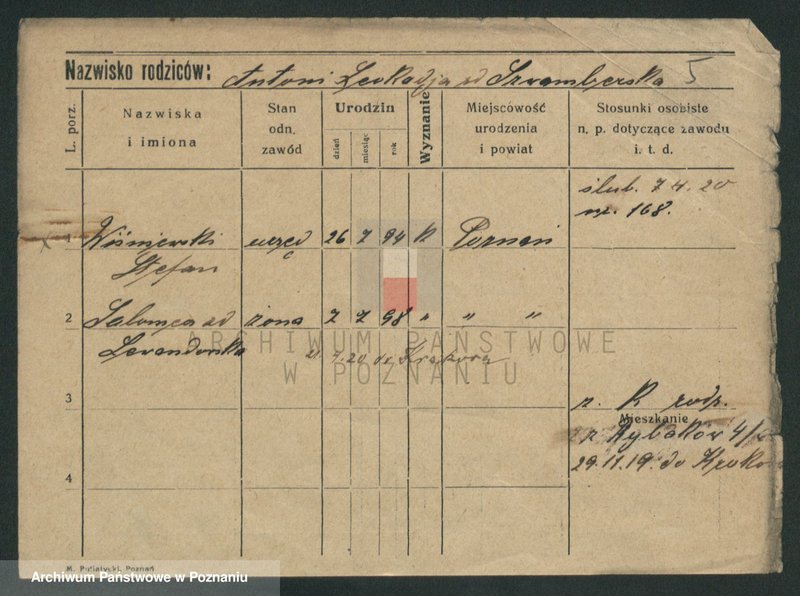 Nazwisko rodziców: Antoni Leokadja zd Szramberska 5
L. porz.
Nazwiska
i imiona
Stan
odn.
zawód
Urodzin
dzień
miesiąc
rok
Wyznanie
Miejscowość
urodzenia
i powiat
Stosunki osobiste
n. p. dotyczące zawodu
i. t. d.
ślub. 7 4. 20
nr. 168.
1 Wiśniewski urzęd 26 7 94 K Poznań
Stefan
2 Salomea zd żona 7 7 98 " " "
Lewandowska
21. 7. 20 do Krakowa
3
z. K. rodz.
Mieszkanie
Rybaków 4/
29. 11. 19. do Krako
4
M. Putiatycki, Poznań
ARCHIWUM PAŃSTWOWE
W POZNANIU
Archiwum Państwowe w Poznaniu